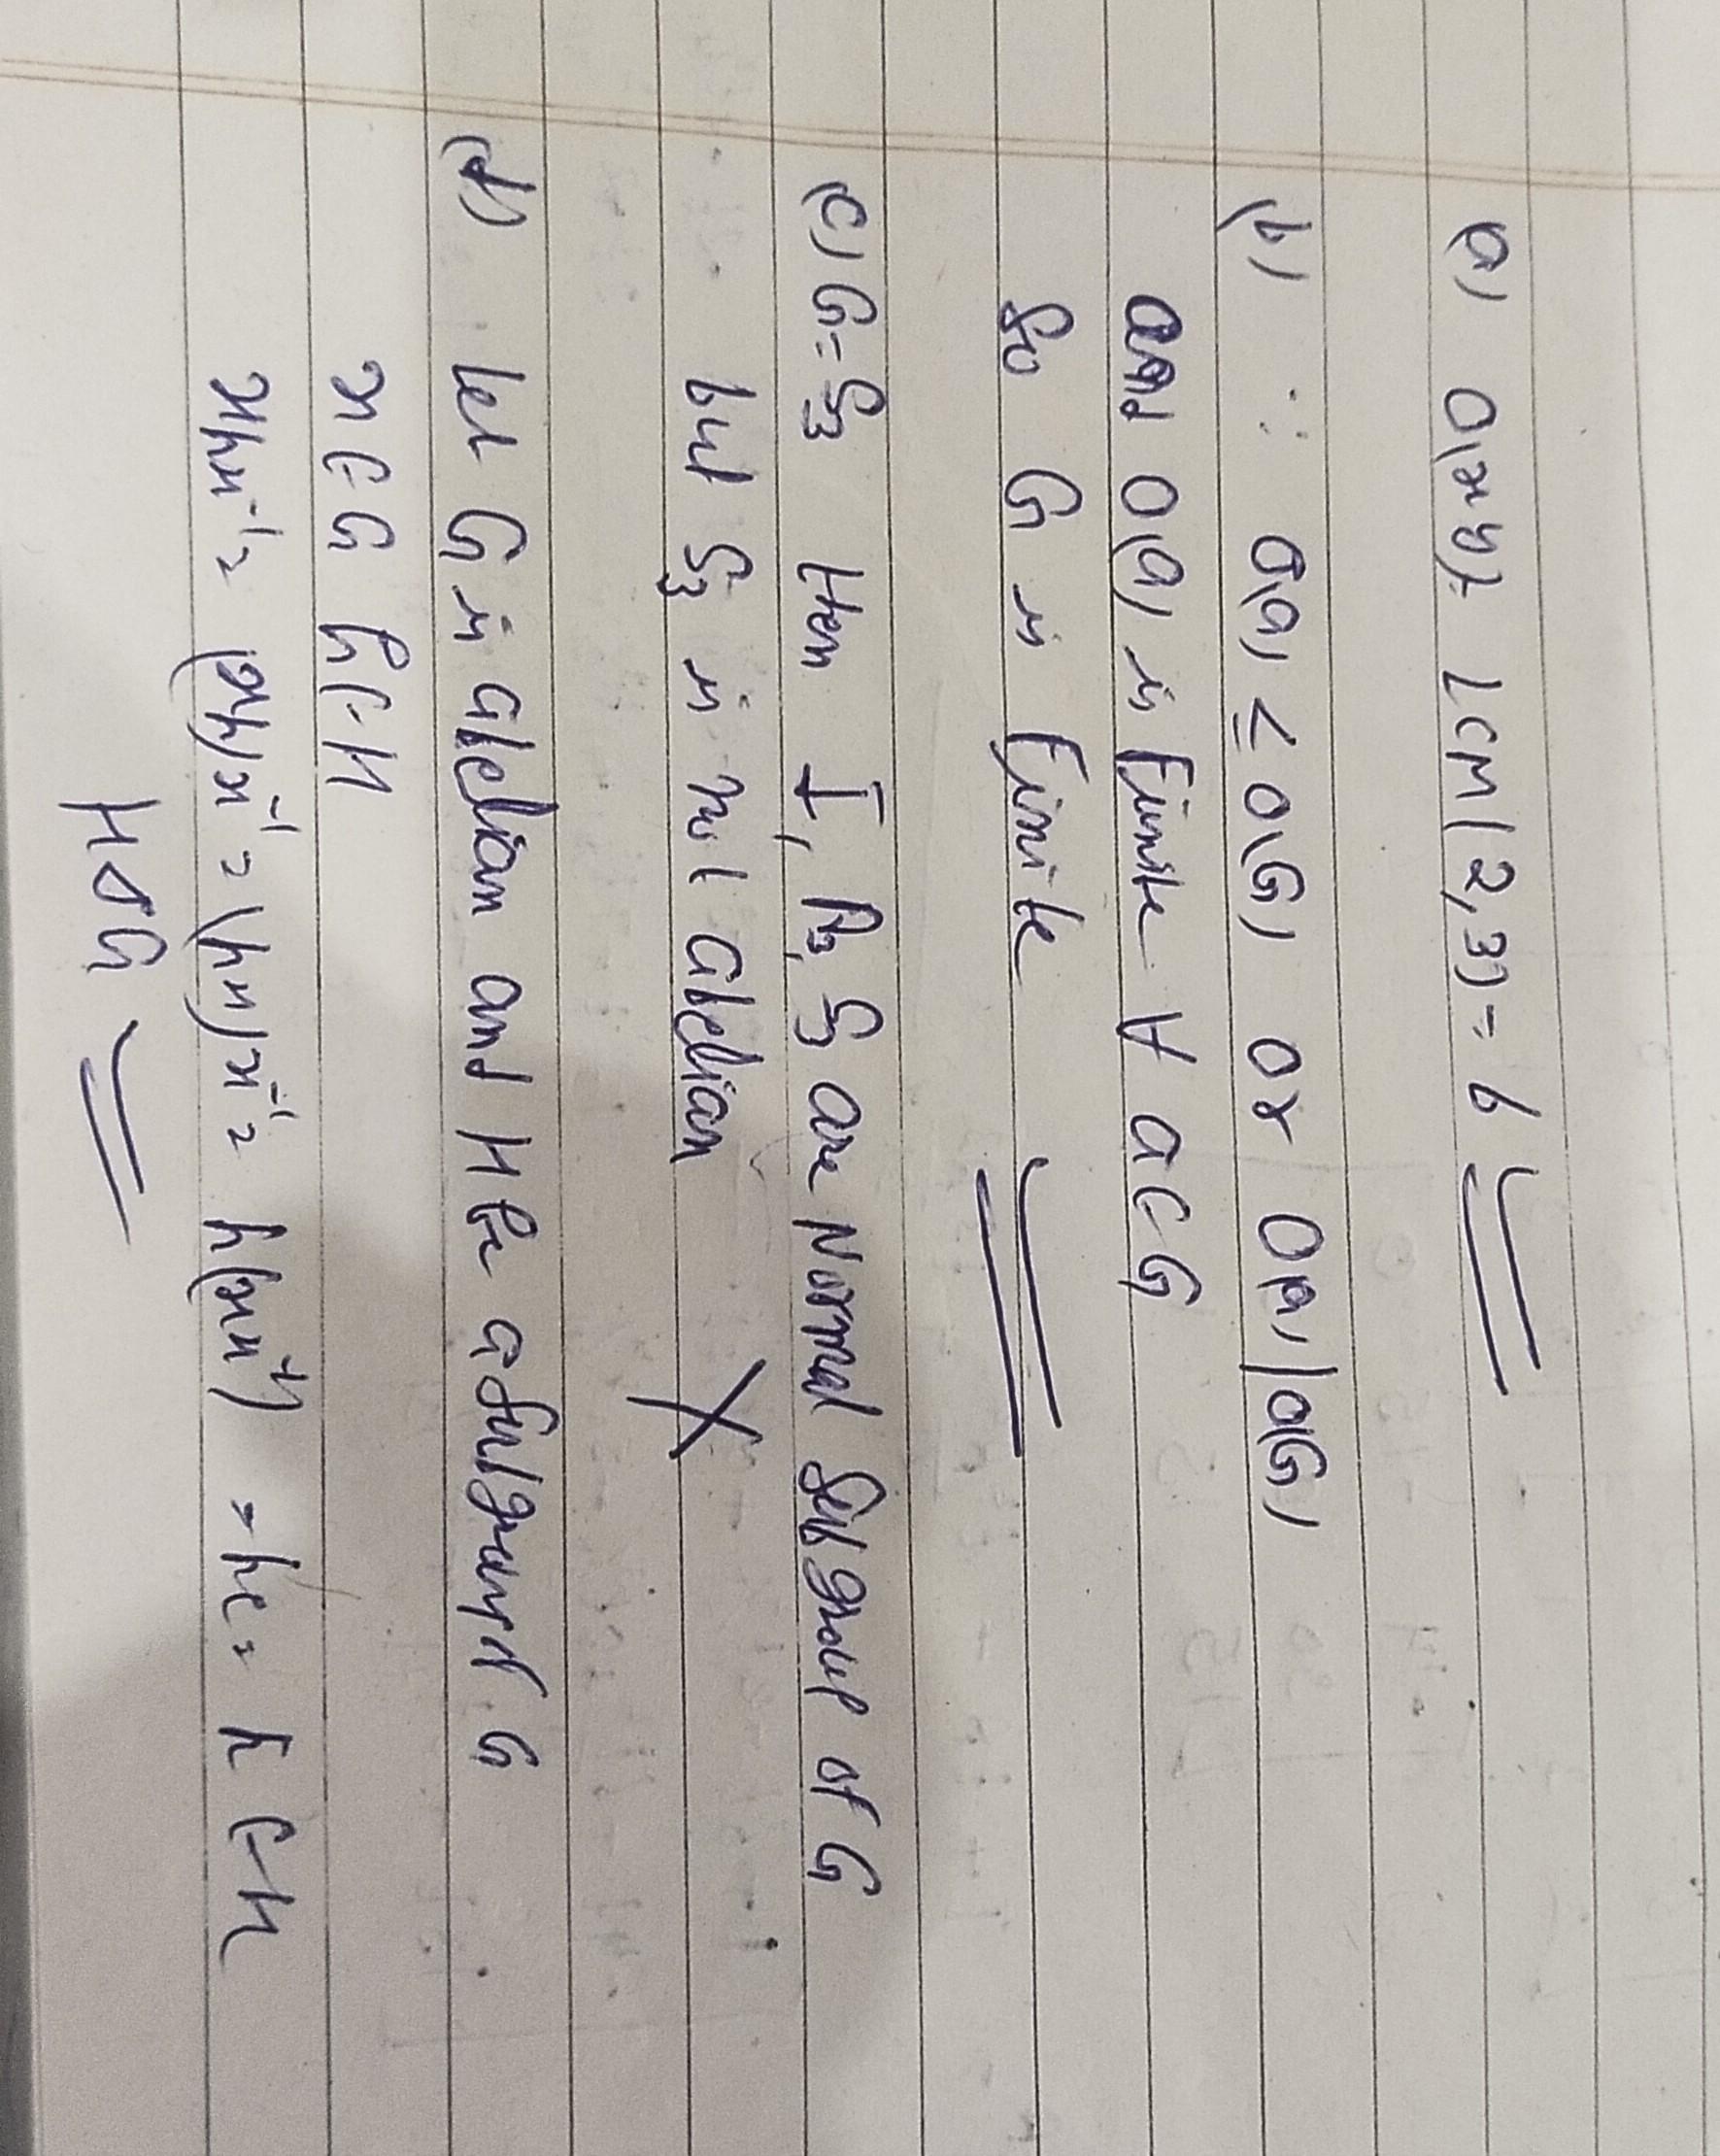 a) O(xy) = LCM(2,3) = 6
b) ∵ O(a) ≤ O(G) or O(a)|O(G)
and O(a) is Finite ∀ a∈G
so G is Finite
c) G = S₃ then I, A₃, S₃ are Normal Subgroup of G
but S₃ is not abelian
d) let G is abelian and H be a subgroup of G
x∈G h∈H
xhx⁻¹ = (xh)x⁻¹ = (hx)x⁻¹ = h(xx⁻¹) = he = h ∈H
H⊲G